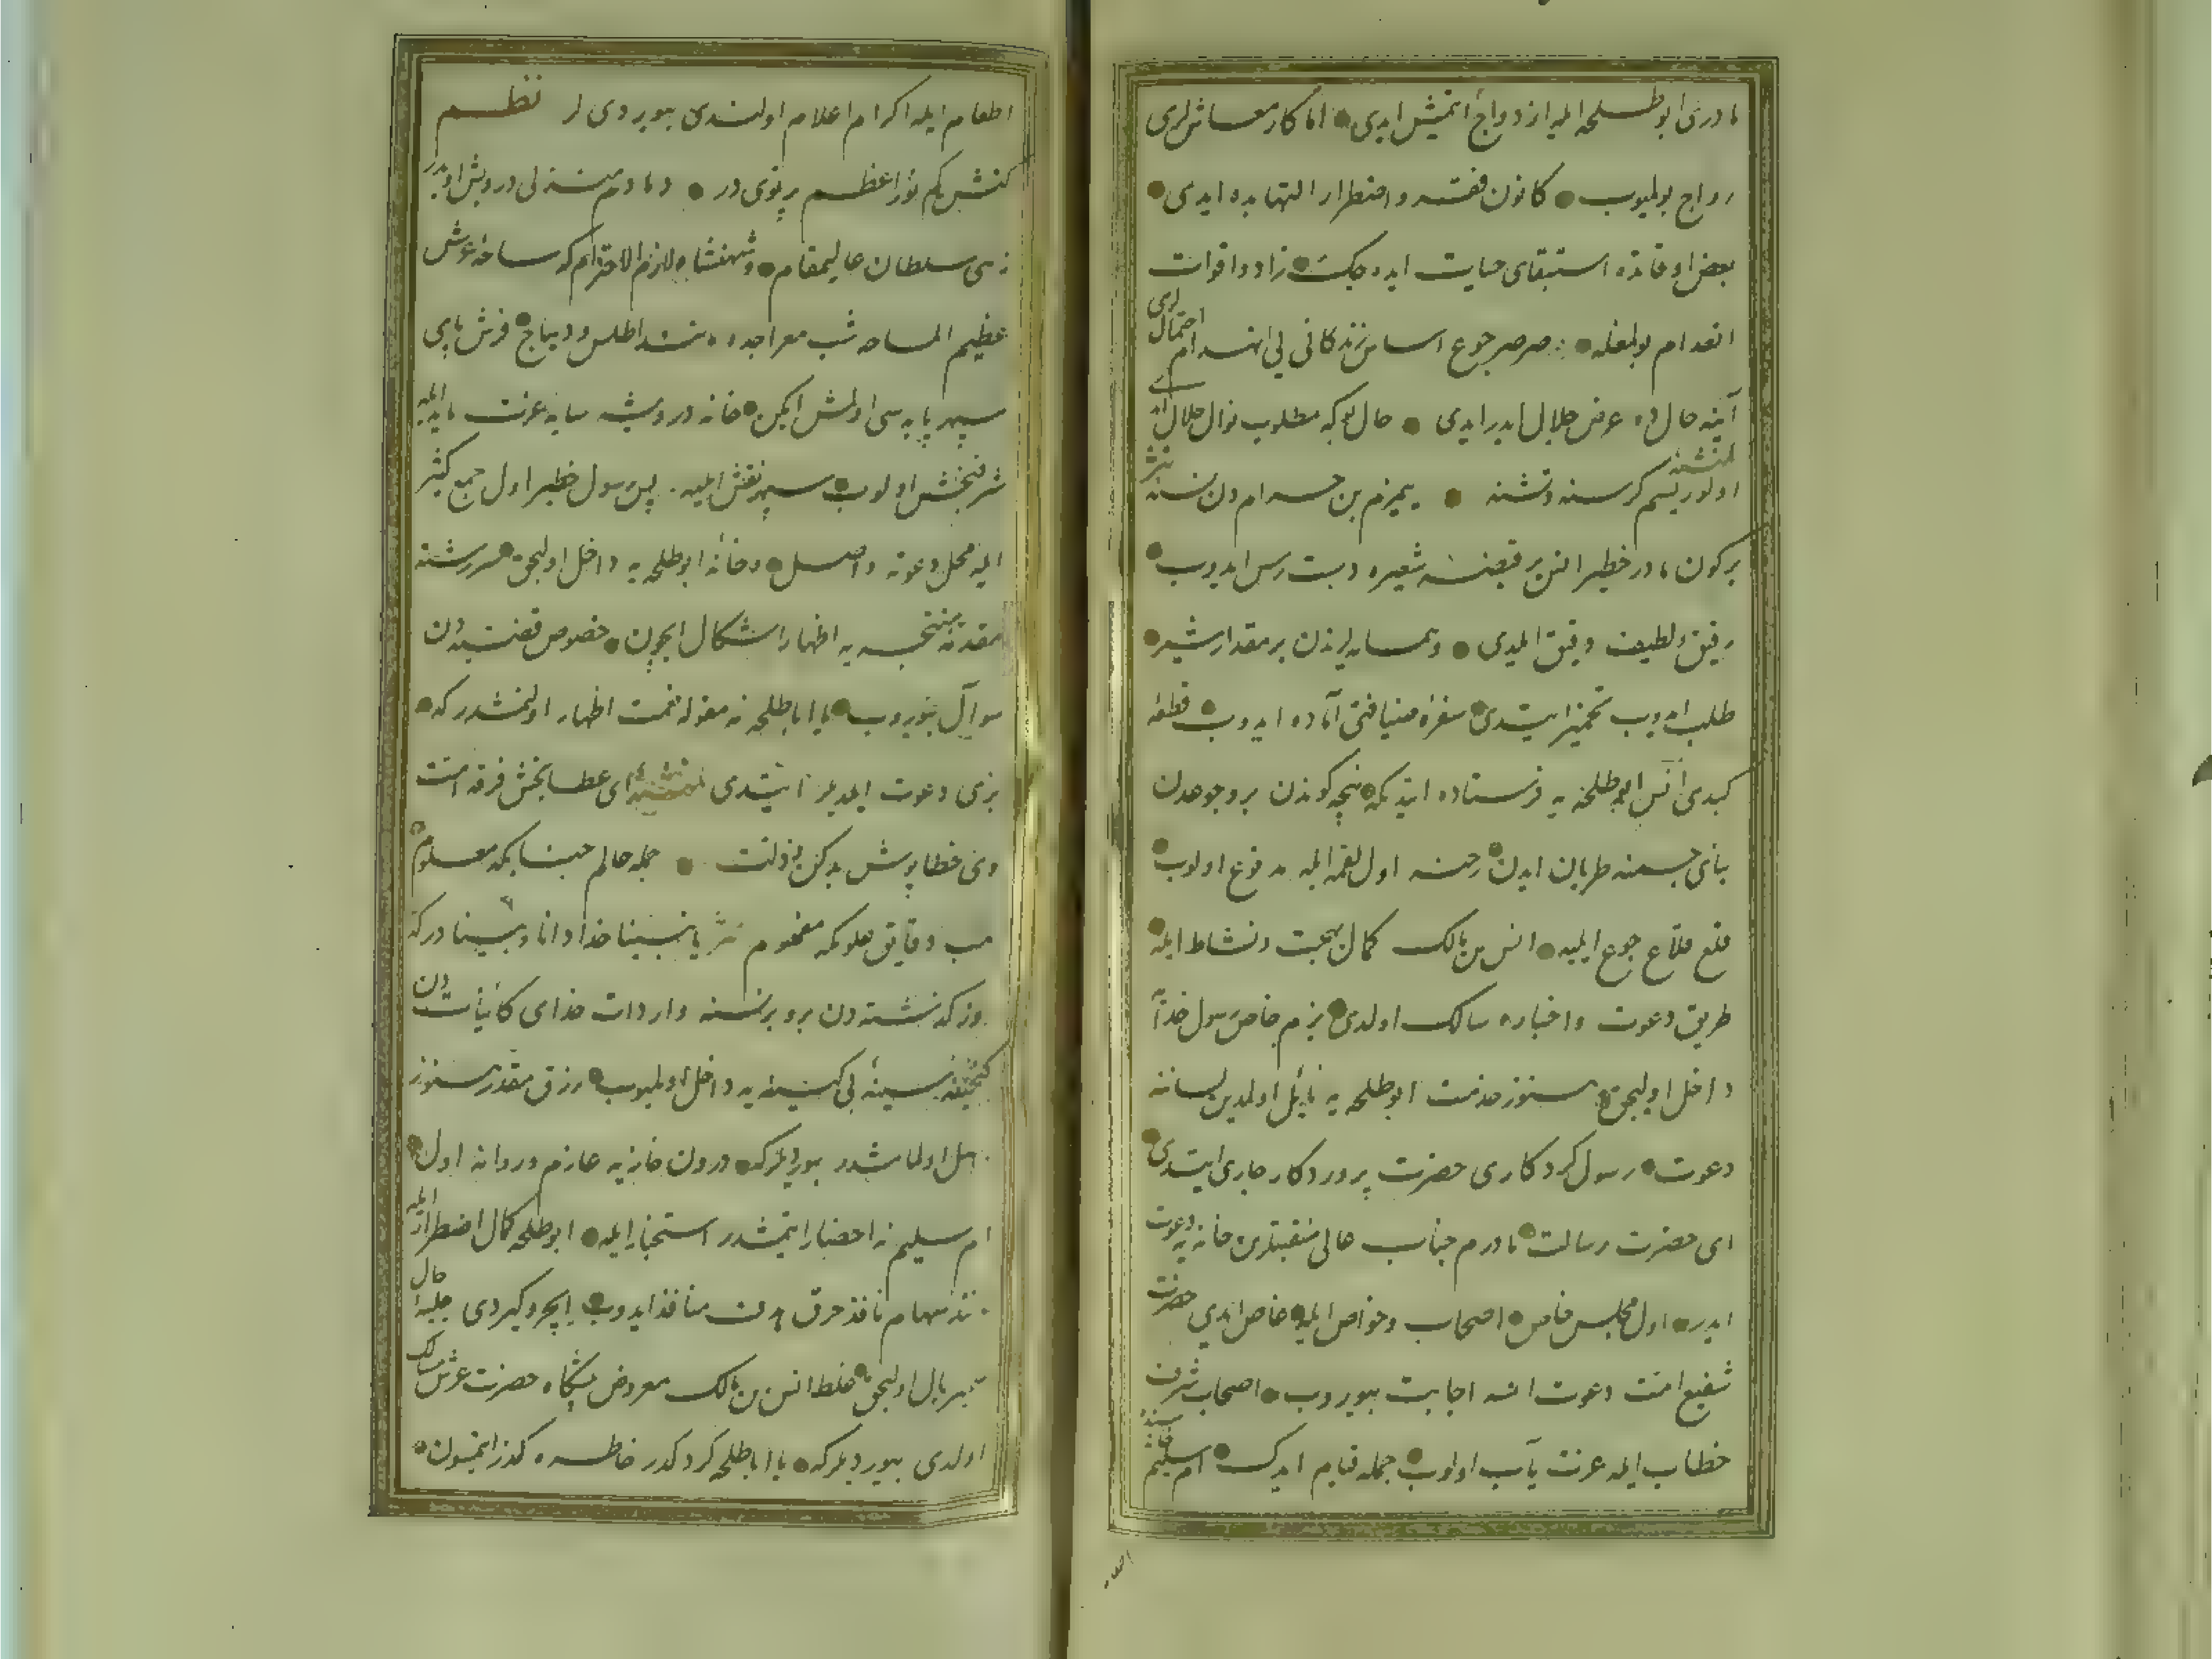 مادری ابو طلحه ایله ازدواج اتمیش ایدی اما کار معاشلری
رواج بولمیوب کانون فتنه و اضطرار التهابده ایدی
بعض اوقاتده استبقای حیات ایده جک زاد و اقوات
انعدام بولمغله صرصر جوع اساس زندکانی یی انهدام احتمالی
آینه حالده عرض جلال ایدر ایدی حال بوکه مطلوب نوال حلال ایدی
اولورسم کرسنه و تشنه یمیزم بن حرام دن نسنه نثر
برکون مادر خطیر انس بر قبضه شعیره دسترس ایدوب
رقیق و لطیف دقیق ایلدی و همسایه لرندن بر مقدار شیر
طلب ایدوب تخمیر ایتدی سفره ضیافتی آماده ایدوب قطعه
کبدی انس ابو طلحه یه فرستاده ایتدیکه نیجه کوندن برو جوعدن
بنای جسمنه طریان ایدن رخنه اول لقمه ایله مدفوع اولوب
قلع قلاع جوع ایلیه انس بن مالک کمال بهجت و نشاط ایله
طریق دعوت و اخباره سالک اولدی بزم خاص رسول خدا
داخل اولیجق هنوز خدمت ابو طلحه یه نایل اولمدین لسانه
دعوت رسول کردکاری حضرت پروردکار جاری ایتدی
ای حضرت رسالت مادرم جناب عالی منقبتلرین خانه یه دعوت
ایدر اول مجلس خاص اصحاب و خواص ایله خاص ایدی حضرت
شفیع امت دعوت انسه اجابت بیوروب اصحاب شرف
خطاب ایله عزت یاب اولوب جمله قیام ایدک ام سلیم
اطعام ایله اکرام اعلام اولندی بیوردی لر نظم
کنش کم نور اعظم پرتوی در دمادم منزلی درویش اویدر
زهی سلطان عالیمقام و شهنشاه لازم الاحترام که ساحه عرش
عظیم المساحه شب معراجده اطلس و دیباج فرش پای
سپهر پایه سی اولمش ایکن خانه درویشه سایه عزت مایه ایله
شرفبخش اولوب سپهر نقش ایلیه پس رسول خطیر اول جمع کثیر
ایله محل دعوته واصل و خانه ابو طلحه یه داخل اولیجق سررشته
مقدمه نتیجه یه اظهار اشکال ایچون خصوص قضیه دن
سوآل بیوروب یا ابا طلحه نه مقوله نعمت اظهار اولنمشدر که
بزی دعوت ایلدیلر ایتدی ای عطابخش فرقه امت
وی خطاپوش هرکن و ذلت جمله حالم جنابکه معلوم
هب دقایق علومکه مفهوم نثر یا نبینا خدا دانا و بینا درکه
روز کذشته دن برو برنسنه واردات خدای کائنات دن
کنجینه سینه بی کینه یه داخل اولمیوب رزق مقدر هنوز
اولمامشدر بیوردیلرکه درون خانه یه عازم و روانه اول
ام سلیم نه احضار ایتمشدر استخبار ایله ابو طلحه کمال اضطرار ایله
سهام نافذ خرق منافذ ایدوب ایچرو کیردی جلیه حال
اولیجق غلط انس بن مالک معروض پیشکاه حضرت عرش مسالک
اولدی بیوردیلرکه یا ابا طلحه کرد کدر خاطره کذر ایتمسون